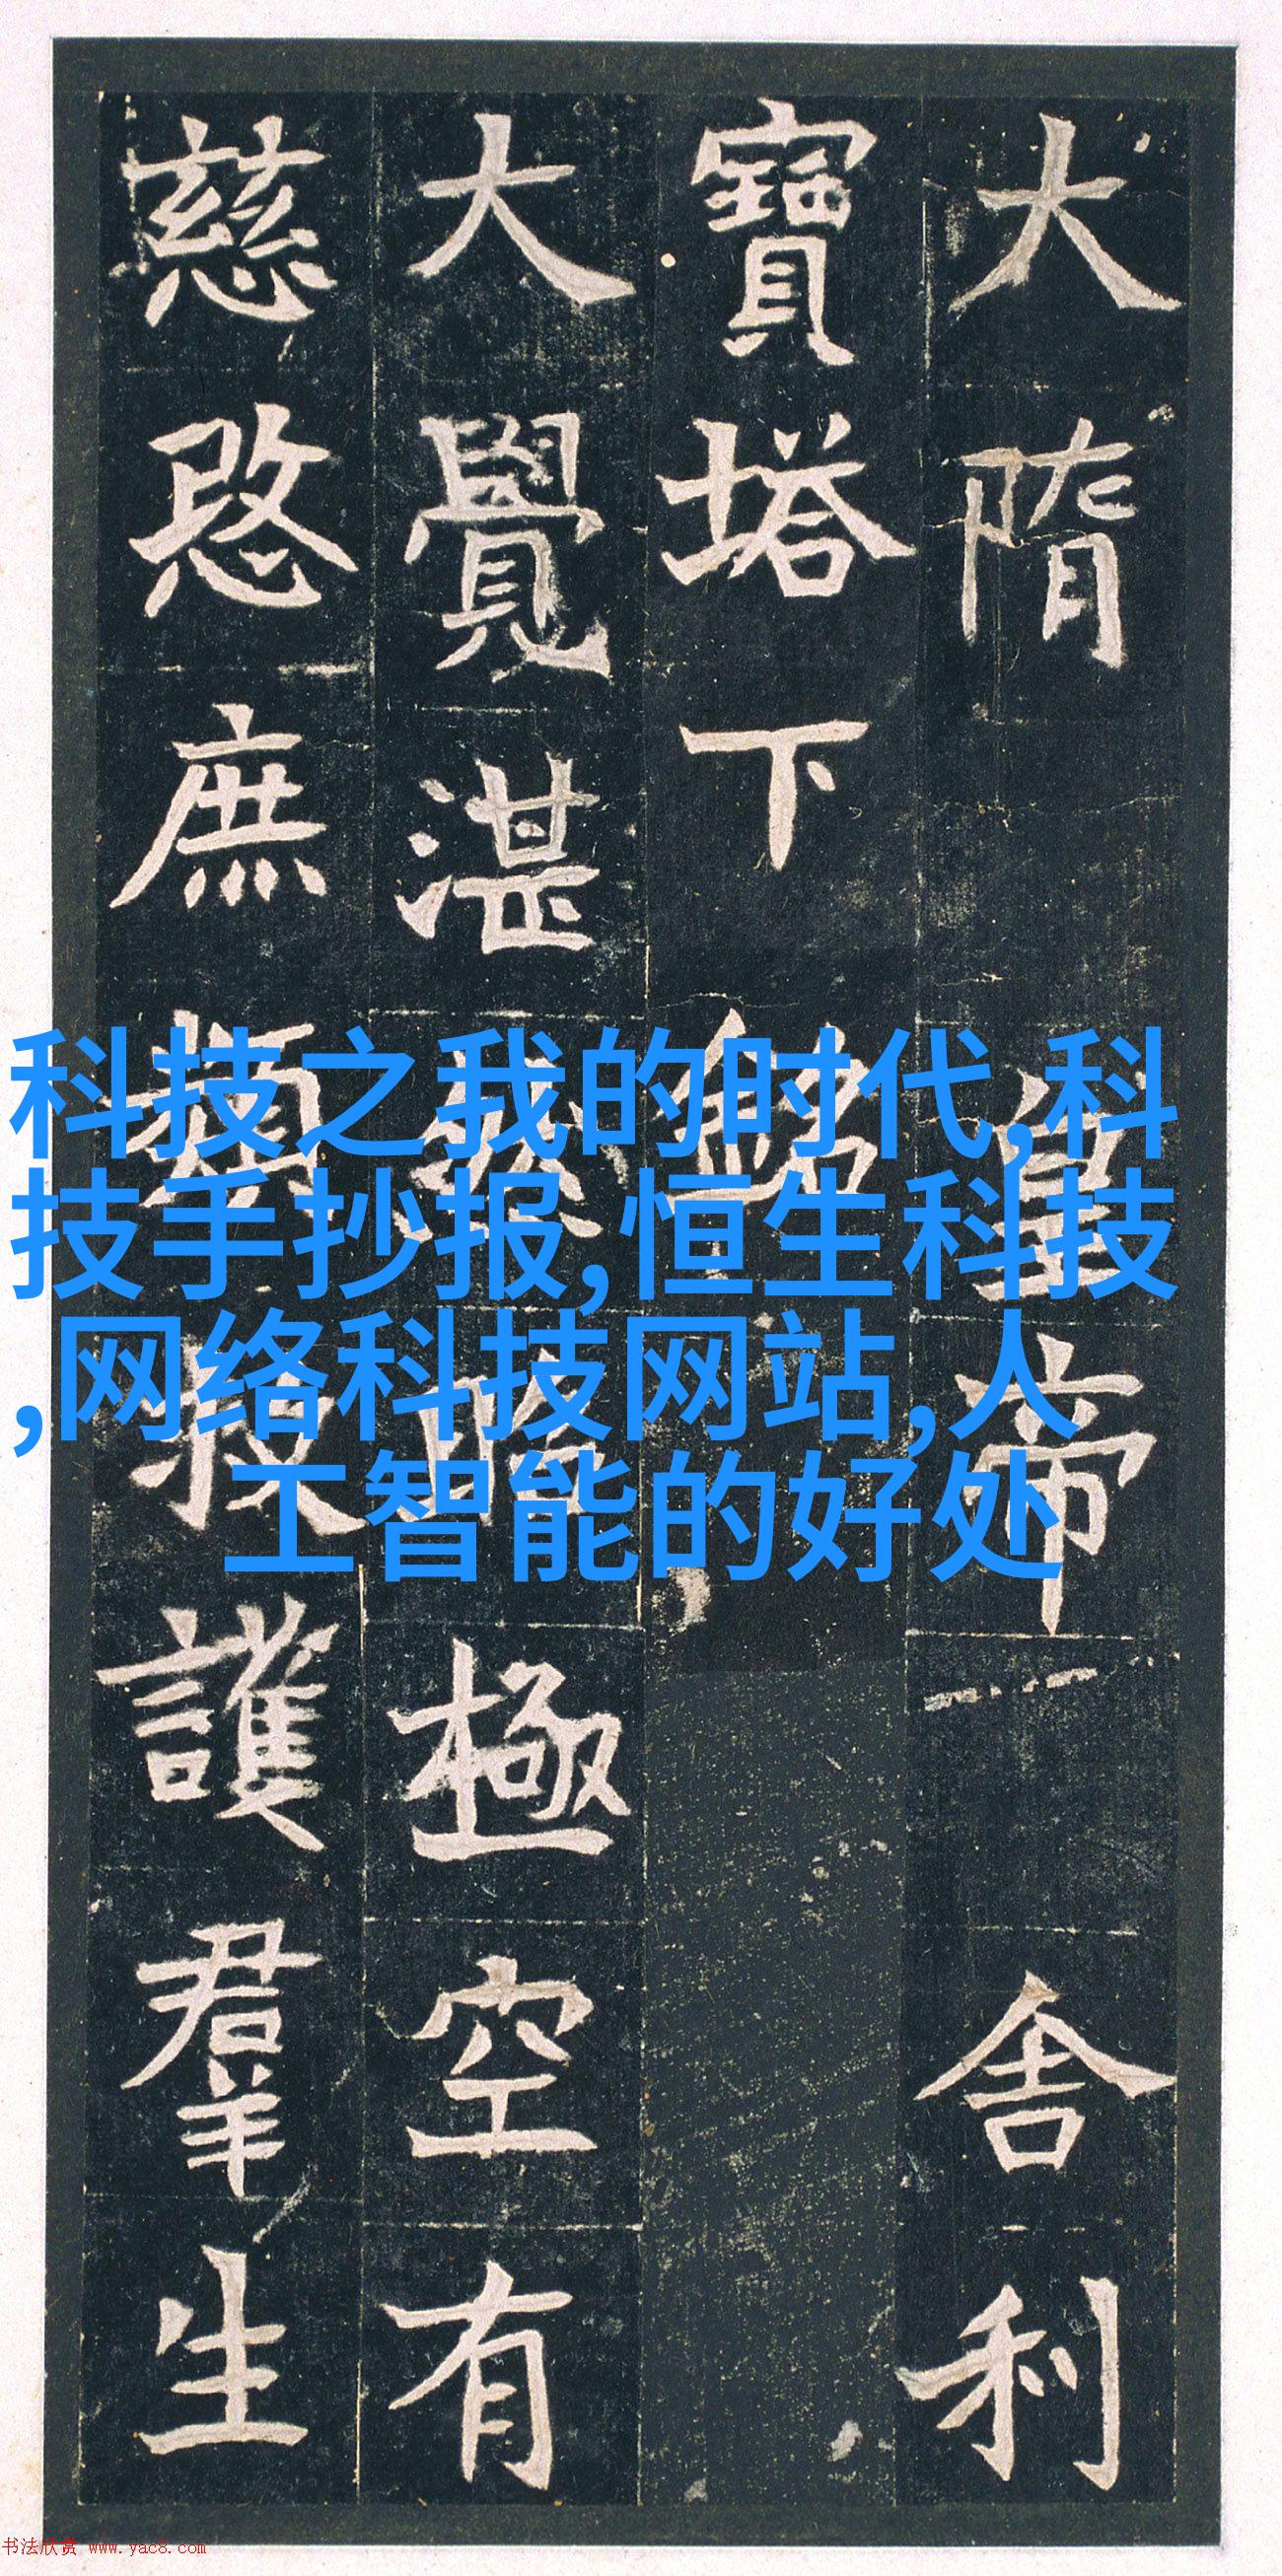 大隋皇帝舍利
寶塔下銘
大覺湛然昭極空有
慈愍庶類救護羣生
科技之我的时代,科
技手抄报,恒生科技
,网络科技网站,人
工智能的好处
书法欣赏 www.yac8.com